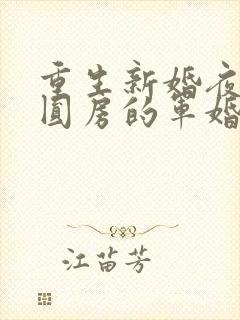 重生新婚夜
圆房的军婚
江苗芳